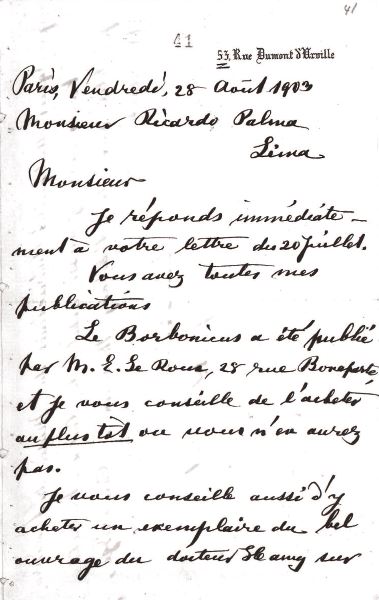 41
41
53, Rue Dumont d'Urville
Paris, Vendredi, 28 Août 1903
Monsieur Ricardo Palma
Lima
Monsieur
Je réponds immédiate-
ment à votre lettre du 20 juillet.
Vous avez toutes mes
publications
Le Borbonicus a été publié
par M. E. Le Roux, 28 rue Bonaparte
et je vous conseille de l'acheter
au plus tôt ou vous n'en aurez
pas.
Je vous conseille aussi d'y
acheter un exemplaire du bel
ouvrage du docteur Hamy sur